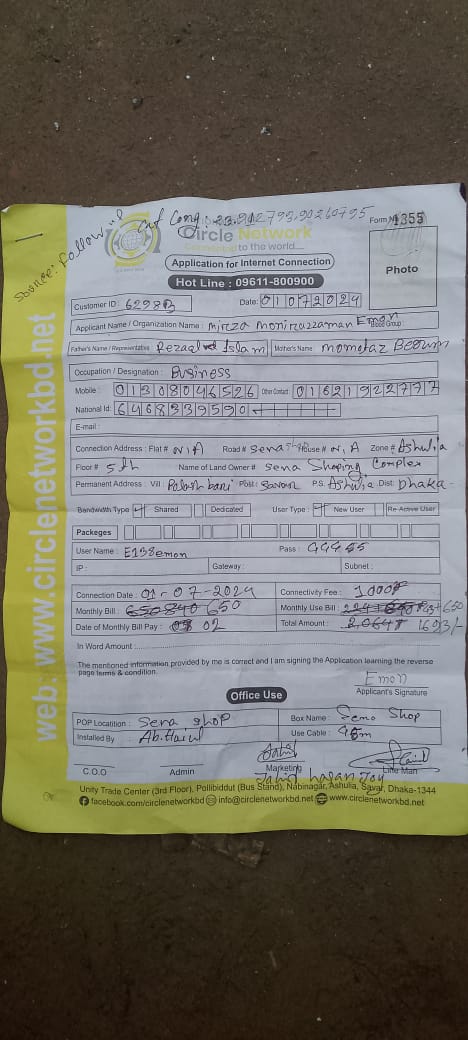 Source: Follow up
Circle Network
Connected to the world....
Form No 1355
Application for Internet Connection
Hot Line : 09611-800900
Photo
Customer ID : 6299B
Date: 01072024
Applicant Name / Organization Name : Mirza Moniruzzaman Emon
Blood Group :
Father's Name / Representative Islam
Mother's Name Momotaz Begum
Occupation / Designation : Business
Mobile : 01308046526 Other Contact : 01621922777
National Id : 6468939590
E-mail :
Connection Address : Flat# N/A Road # Sena House # N/A Zone # Ashulia
Floor # 5th Name of Land Owner # Sena Shoping Complex
Permanent Address : Vill : Palash bari Post: Savar P.S. Ashulia Dist: Dhaka
Bandwidth Type Shared Dedicated User Type : New User Re-Active User
Packeges
User Name : E1Semon Pass :
IP : Gateway : Subnet :
Connection Date : 01-07-2024 Connectivity Fee : 1000
Monthly Bill : 650 840 650 Monthly Use Bill :
Date of Monthly Bill Pay : 02 Total Amount :
In Word Amount :
The mentioned information provided by me is correct and I am signing the Application learning the reverse
page terms & condition.
Emon
Applicant's Signature
Office Use
POP Locatition : Sena shop Box Name : Sena Shop
Installed By : Use Cable :
C.O.O Admin Marketing Line Man
Jahid hasan Joy
Unity Trade Center (3rd Floor), Pollibiddut (Bus Stand), Nabinagar, Ashulia, Savar, Dhaka-1344
facebook.com/circlenetworkbd info@circlenetworkbd.net www.circlenetworkbd.net
web: www.circlenetworkbd.net